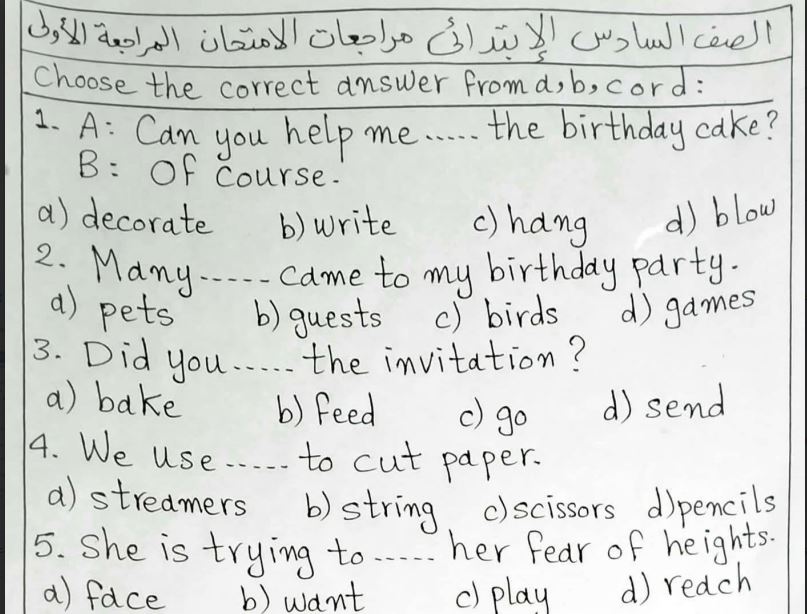 الصف السادس الإبتدائى مراجعات الامتحان المراجعة الأولى
Choose the correct answer from a, b, c or d:
1. A: Can you help me ..... the birthday cake?
B: Of course.
a) decorate b) write c) hang d) blow
2. Many ..... came to my birthday party.
a) pets b) guests c) birds d) games
3. Did you ..... the invitation?
a) bake b) feed c) go d) send
4. We use ..... to cut paper.
a) streamers b) string c) scissors d) pencils
5. She is trying to ..... her fear of heights.
a) face b) want c) play d) reach